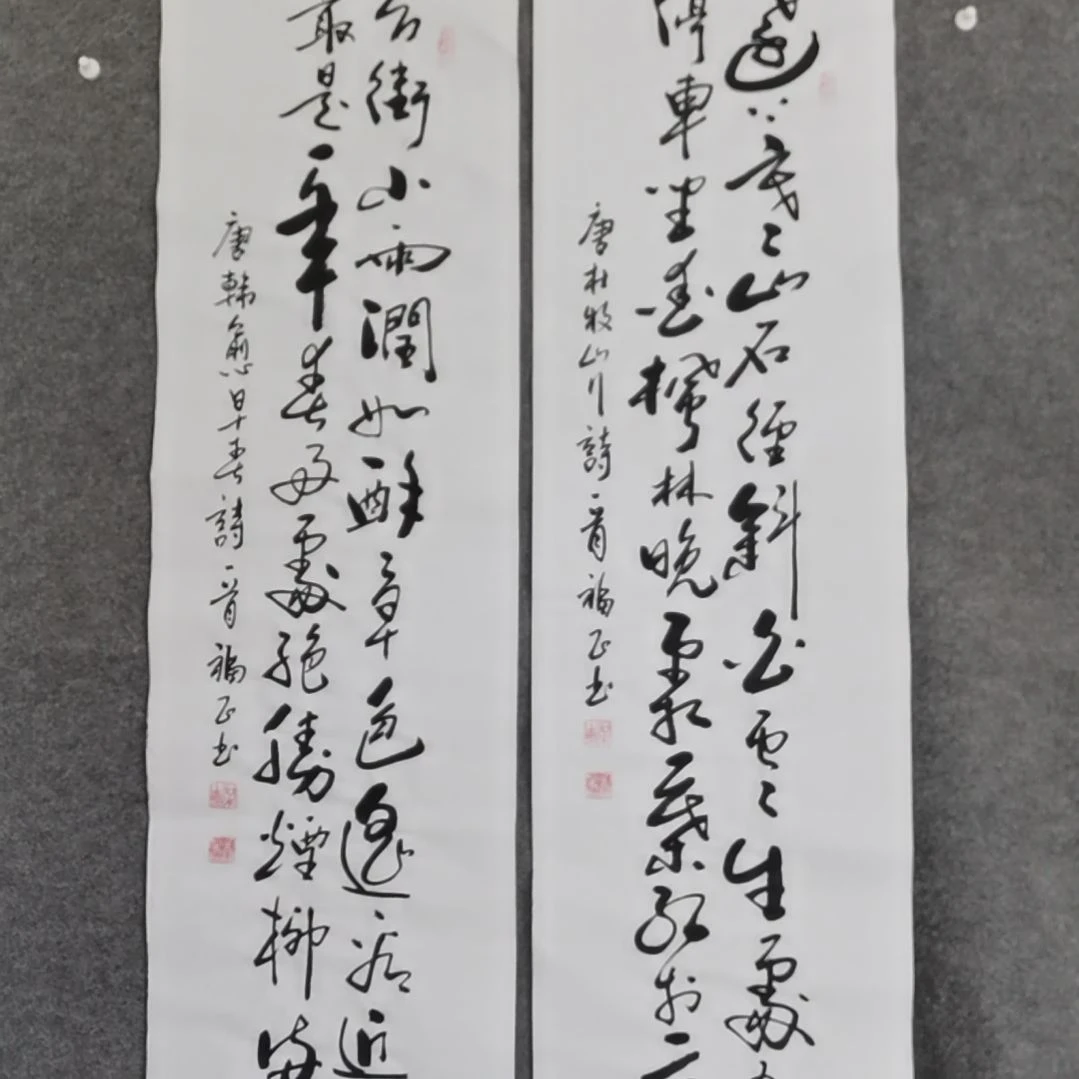 遠上寒山石徑斜白雲生處
停車坐愛楓林晚霜葉紅於二
唐杜牧山行詩一首福正书
街小雨潤如酥草色遙看近
最是一年春好處絕勝煙柳滿
唐韓愈早春詩一首福正书